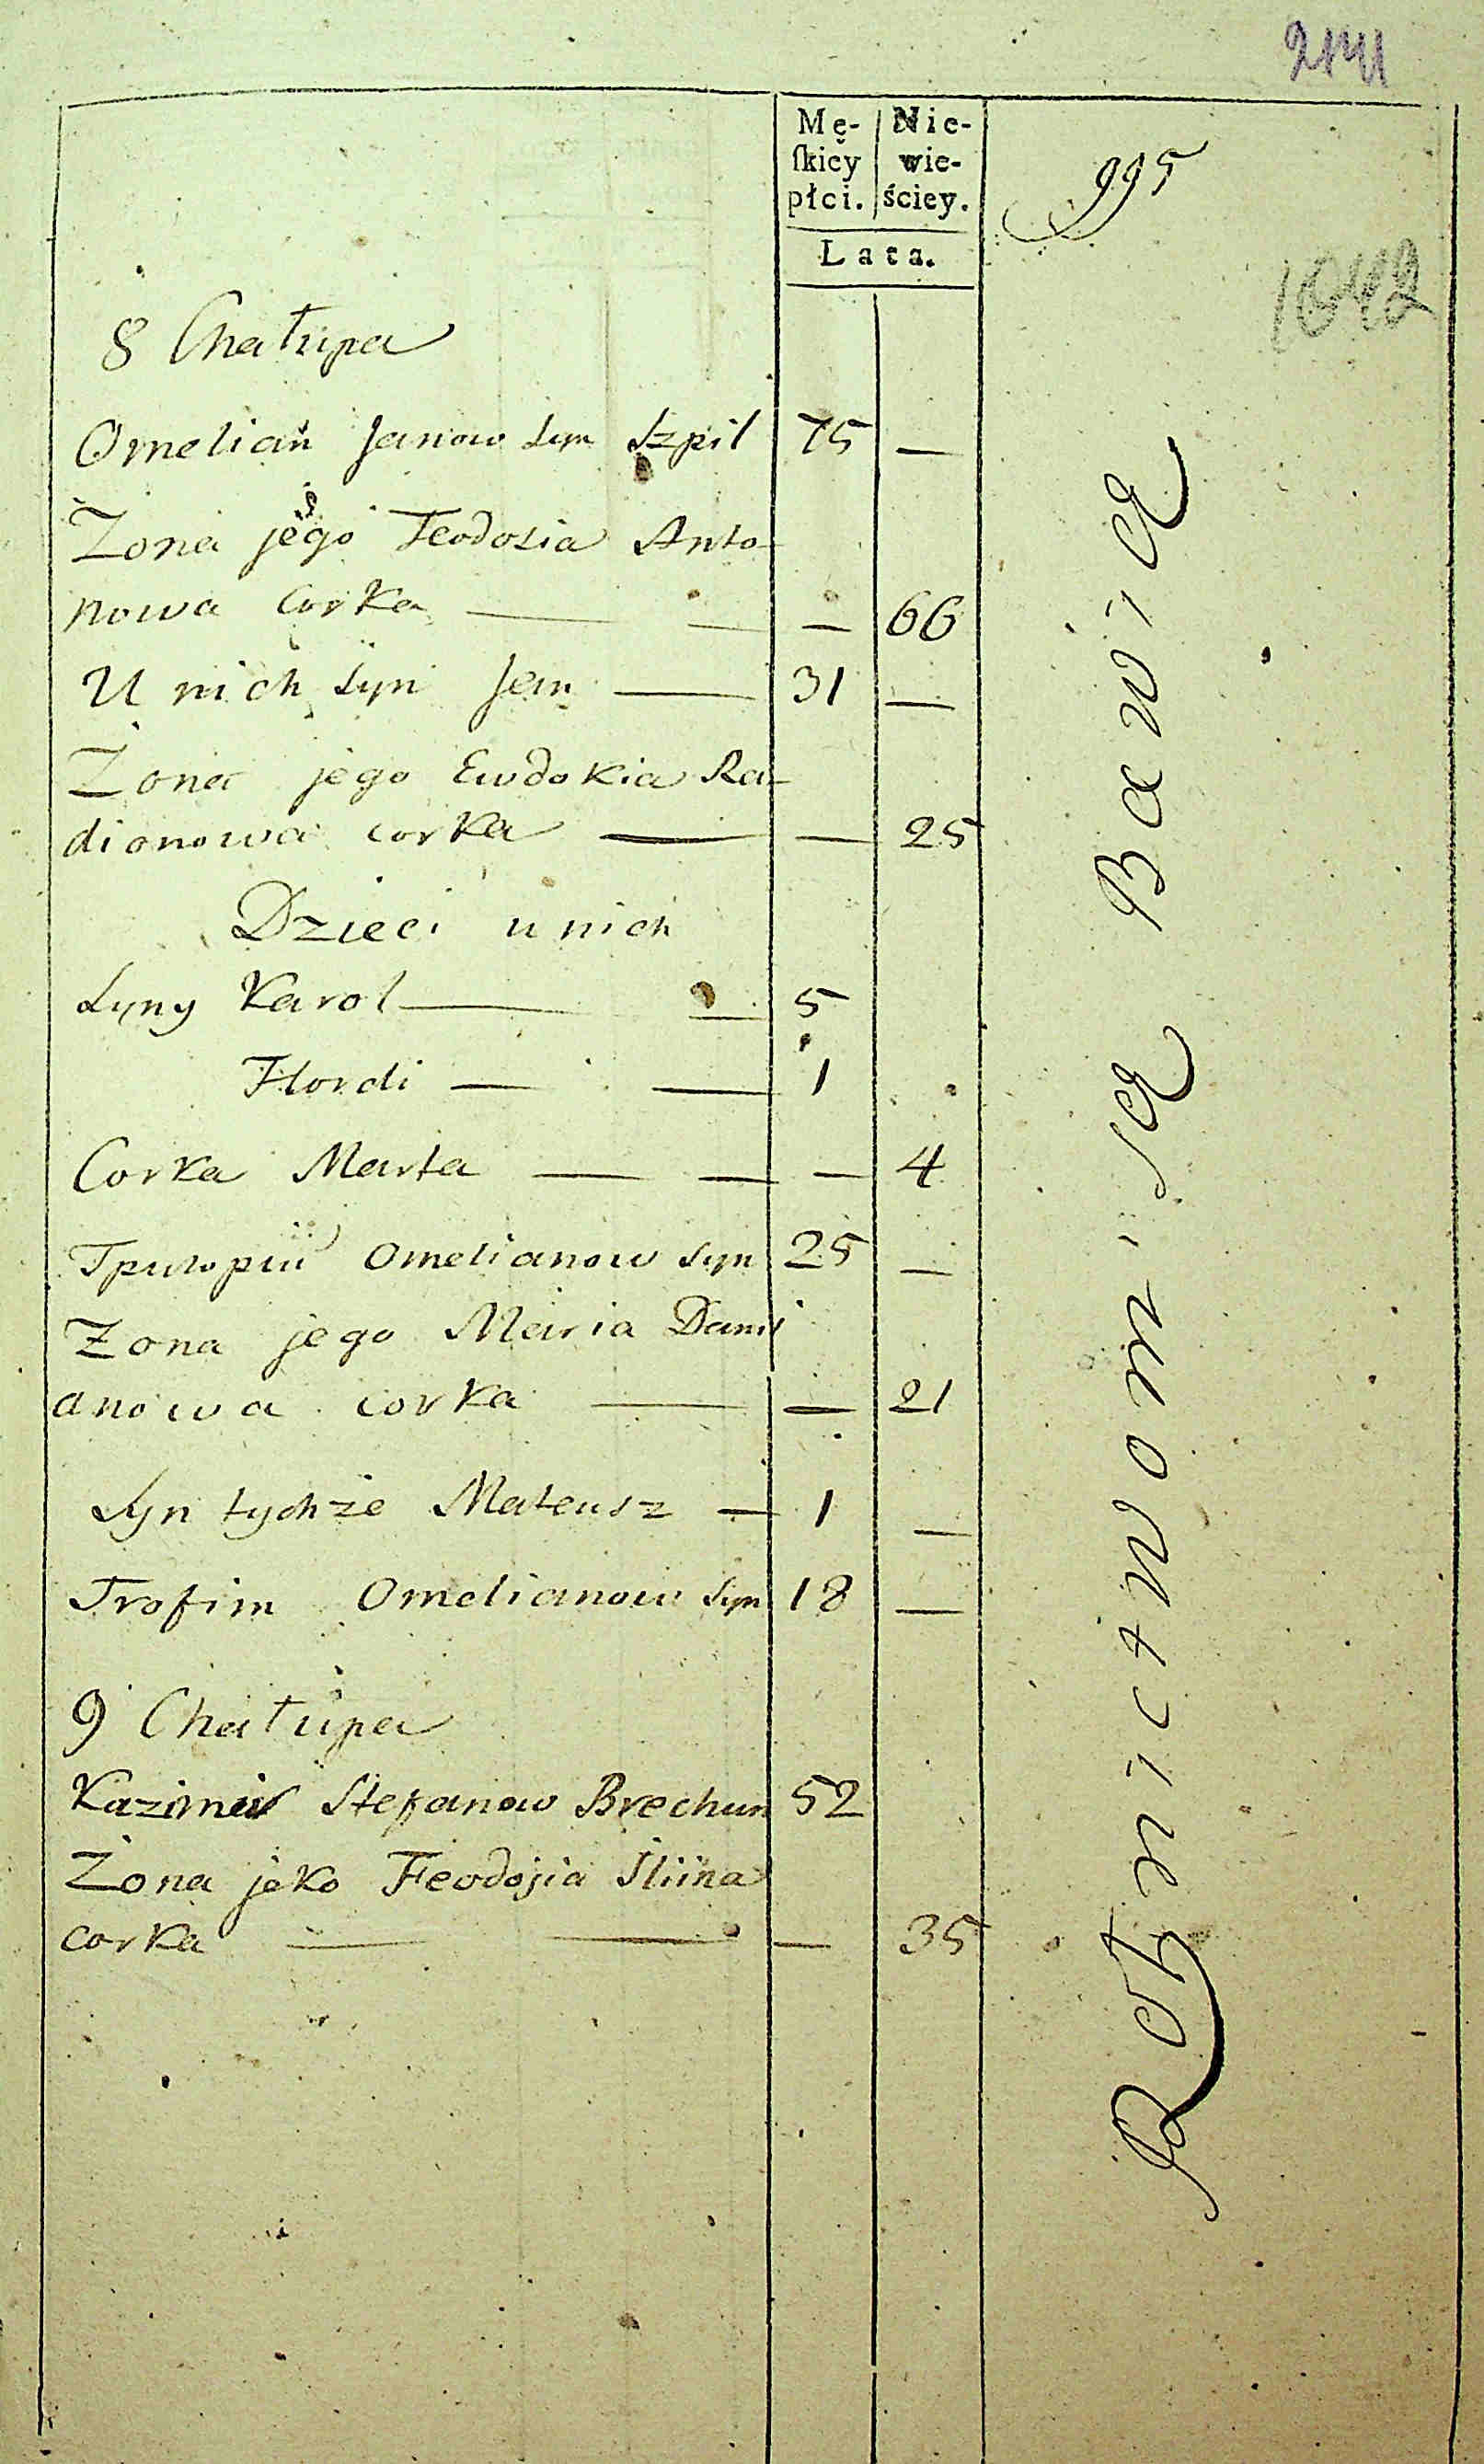 Mę- Nie-
ſkiéy wie-
płci. ściey.
Lata.
995
1042
8 Chałupa
Omelian Janow Syn Szpil 75 —
Zona jego Teodosia Anto-
nowa Corka — — — 66
U nich Syn Jan — 31 —
Żona jego Ewdokia Ra-
dionowa corka — — 25
Dzieci u nich
Syny Karol — — 5
Hordi — — 1
Corka Marta — — — 4
Omelianow Syn 25 —
Zona jego Maria Dami
anowa corka — — 21
Syn tychze Mateusz — 1 —
Trofim Omelianow Syn 18 —
9 Chałupa
Kazimir Stefanow Brechun 52
Zona jeko Feodosia Iliina
corka — — — 35
Rolnictwom się Bawią